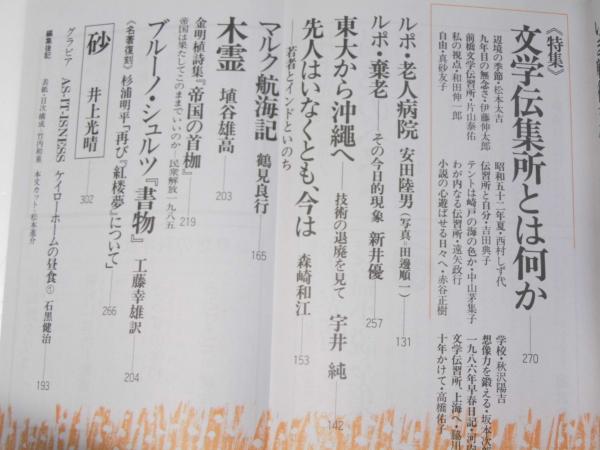 《特集》
文学伝集所とは何か——270
辺境の季節・松本太吉
九年目の無念さ・伊藤伸太郎
前橋文学伝習所・片山泰佑
私の視点・和田伸一郎
自由・真砂友子
昭和五十二年夏・西村しず代
伝習所と自分・吉田典子
テントは崎戸の海の色か・中山茅集子
わが内なる伝習所・遠矢政行
小説の心遊ばせる日々へ・赤谷正樹
学校・秋沢陽吉
想像力を鍛える・坂本
一九八六年早春日記・河
文学伝習所、上海へ・脇川
十年かけて・高橋佑子
ルポ・老人病院 安田陸男(写真=田邊順一)——131
ルポ・棄老——その今日的現象 新井優——257
東大から沖縄へ 技術の退廃を見て 宇井純——142
先人はいなくとも、今は 森崎和江——153
若者とインドといのち
マルク航海記 鶴見良行——165
木霊 埴谷雄高——203
金明植詩集『帝国の首枷』——219
帝国は果たしてこのままでいいのか—民衆解放一九八五
ブルーノ・シュルツ『書物』 工藤幸雄訳——204
《名著復刻》杉浦明平「再び『紅楼夢』について」——266
砂 井上光晴——302
グラビア AS-IT-IS-NESS ケイローホームの昼食① 石黒健治——193
編集後記
表紙・目次構成・竹内和重 本文カット・松本進介